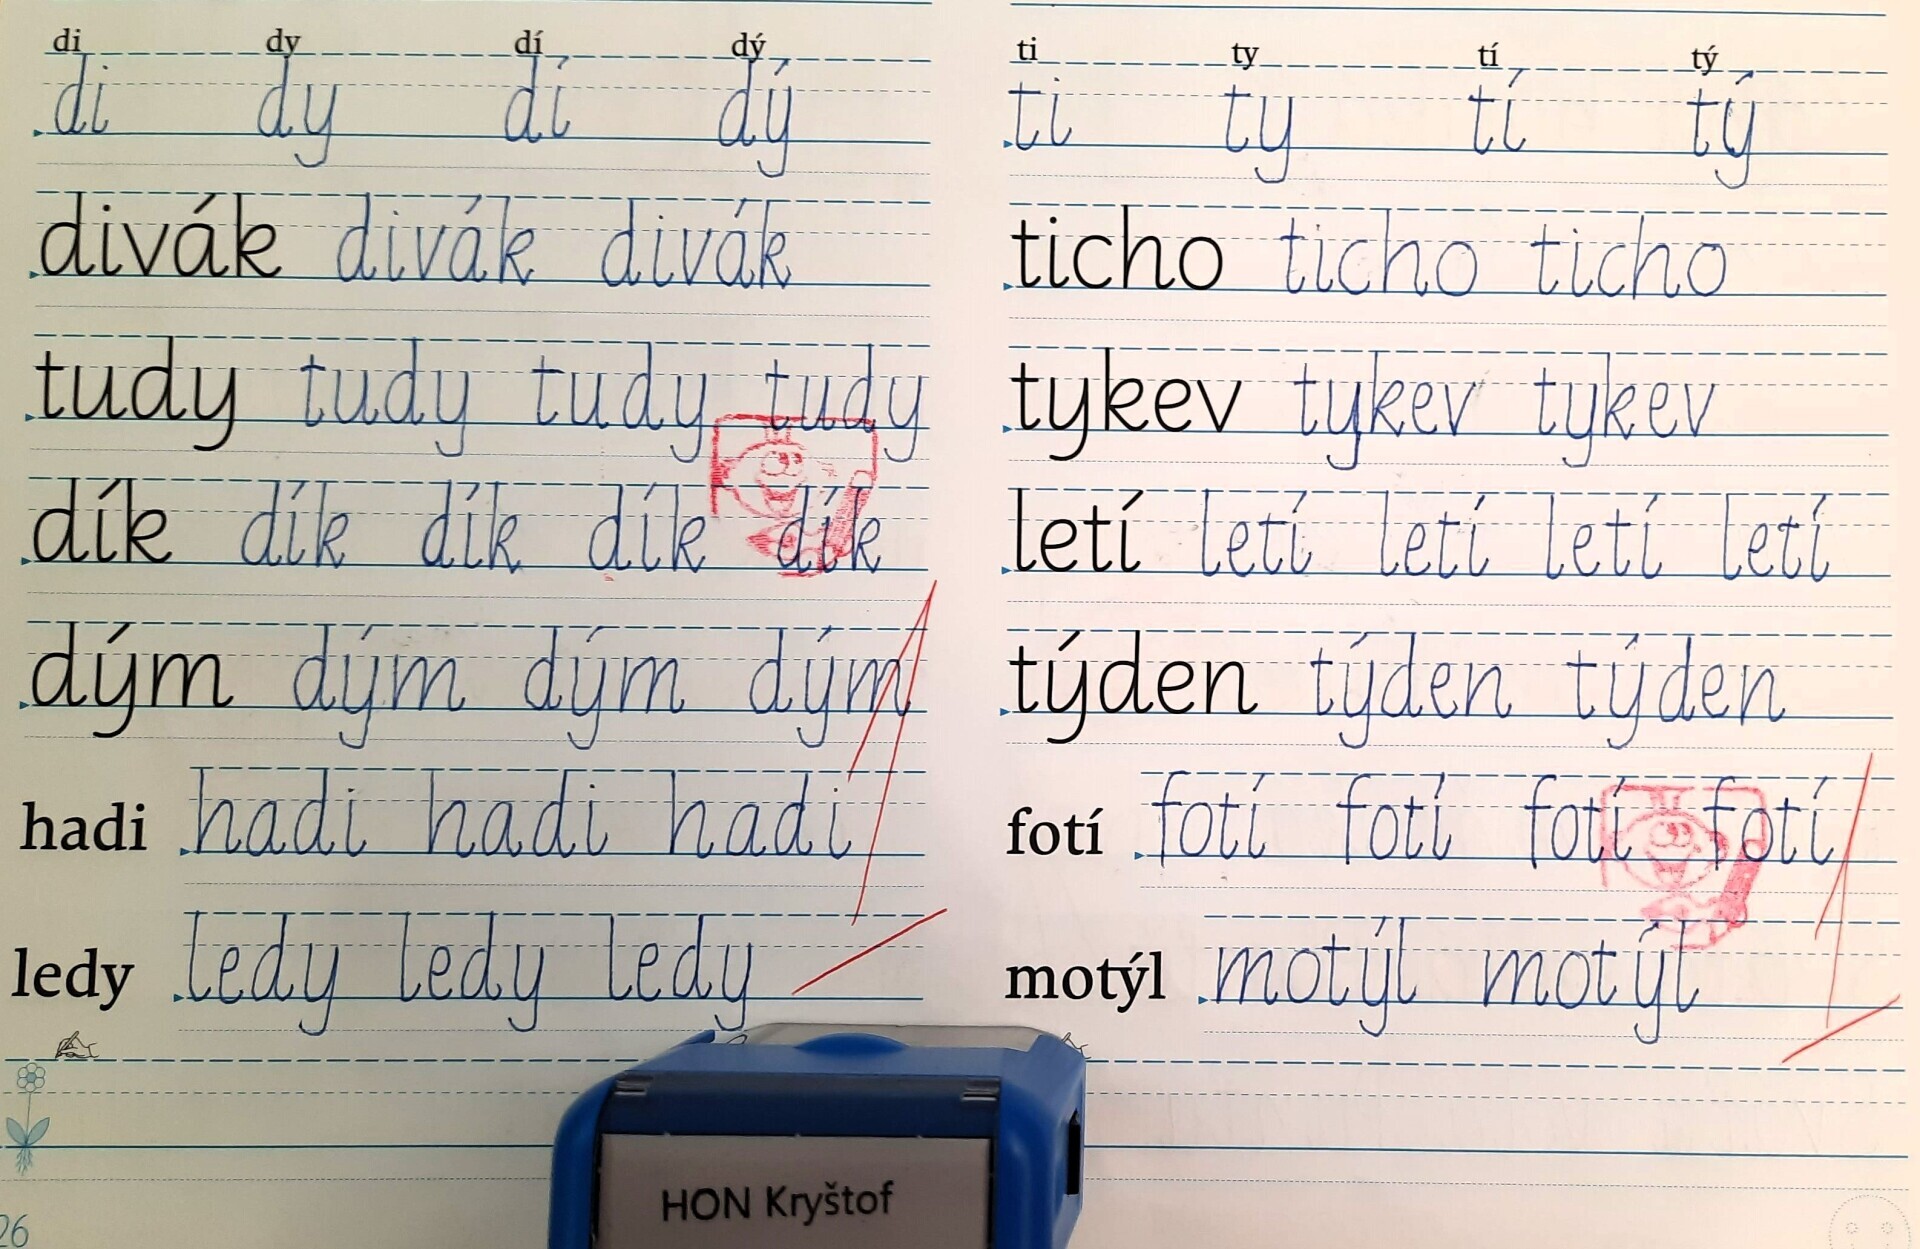 di dy dí dý
di dy dí dý
divák divák divák
tudy tudy tudy tudy
dík dík dík dík dík
dým dým dým dým
hadi hadi hadi hadi
ledy ledy ledy ledy
26
ti ty tí tý
ti ty tí tý
ticho ticho ticho
tykev tykev tykev
letí letí letí letí letí
týden týden týden
fotí fotí fotí fotí fotí
motýl motýl motýl
HON Kryštof